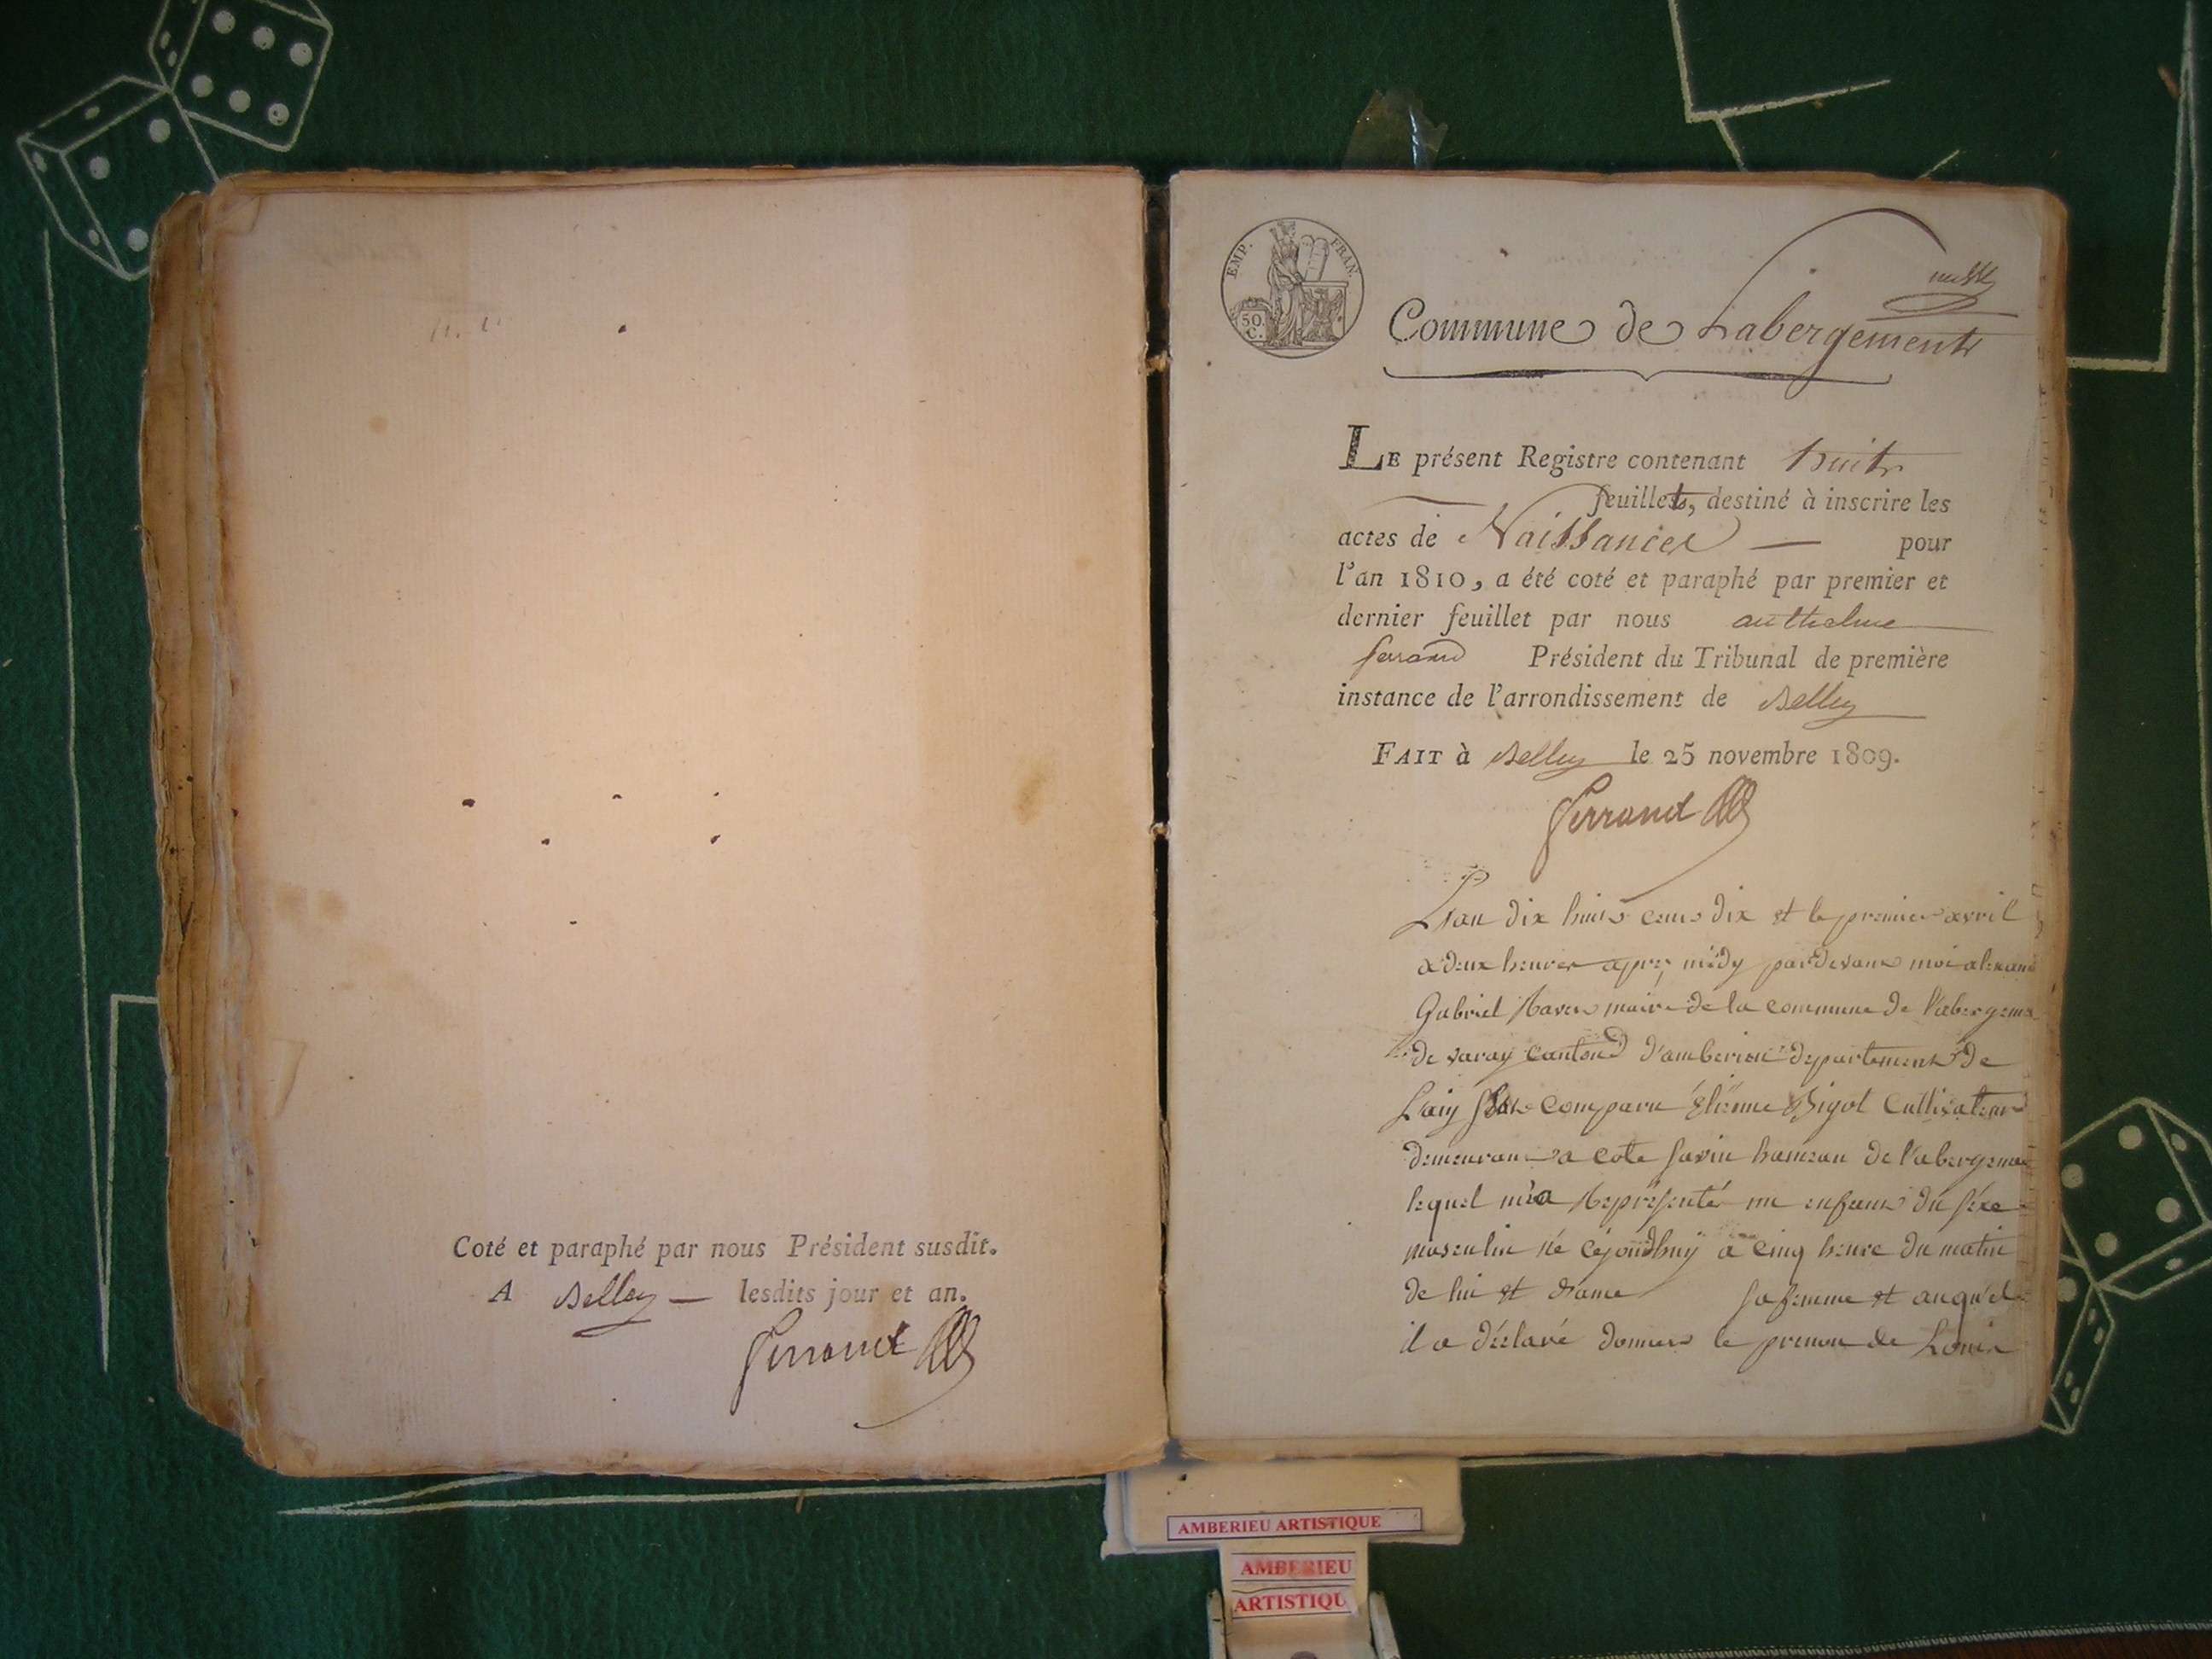 Coté et paraphé par nous Président susdit.
A Belley — lesdits jour et an.
Ferrand
EMP. FRAN.
50. C.
Commune de Labergement
LE présent Registre contenant huit
feuillets, destiné à inscrire les
actes de Naissances — pour
l'an 1810, a été coté et paraphé par premier et
dernier feuillet par nous anthelme
ferrand Président du Tribunal de première
instance de l'arrondissement de Belley
FAIT à Belley le 25 novembre 1809.
Ferrand
L'an dix huit cent dix et le premier avril
a deux heures apres midy pardevant moi
Gabriel maire de la commune de l'abergeme
de varay canton d'amberieu departement de
L'ain est comparu étienne Bigot Cultivateur
demeurant a cote savin hameau de l'abergeme
lequel m'a représenté un enfant du séxe
masculin né cejourdhuy a cinq heure du matin
de lui et dame sa femme et auquel
il a déclaré donner le prenom de Louis
AMBERIEU ARTISTIQUE
AMBERIEU
ARTISTIQU